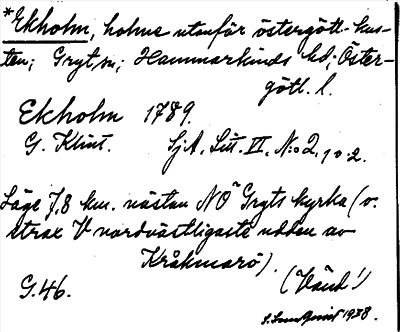 *Ekholm, holme utanför östergött.-kus-
ten; Gryt, sn; Hammarkinds hd; Öster-
götl. l.
Ekholm 1789.
G. Klint. SjA. Litt. VI. N:o 2, 1 o. 2.
Läge 7,8 km. nästan NO Gryts kyrka (o.
strax V nordvästligaste udden av
Kråkmarö).
G.46. (Vänd!)
1938.